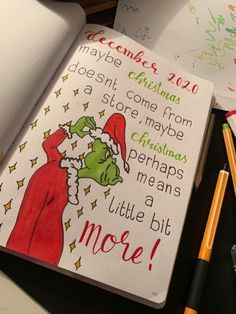 december 2020
maybe christmas
doesnt come from
a store, maybe
christmas
perhaps
means
a
little bit
more!